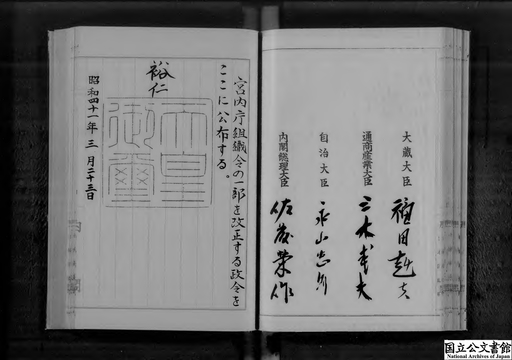 大蔵大臣 福田赳夫
通商産業大臣 三木武夫
自治大臣 永山忠則
内閣総理大臣 佐藤榮作
宮内庁組織令の一部を改正する政令を
ここに公布する。
裕仁
天皇御璽
昭和四十一年三月二十三日
国立公文書館
National Archives of Japan